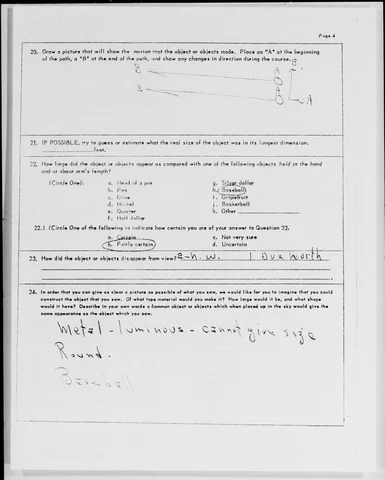 Page 4
20. Draw a picture that will show the motion that the object or objects made. Place an "A" at the beginning
of the path, a "B" at the end of the path, and show any changes in direction during the course.
B
B A
B A
A
21. IF POSSIBLE, try to guess or estimate what the real size of the object was in its longest dimension.
feet.
22. How large did the object or objects appear as compared with one of the following objects held in the hand
and at about arm's length?
(Circle One): a. Head of a pin g. Silver dollar
b. Pea h. Baseball
c. Dime i. Grapefruit
d. Nickel j. Basketball
e. Quarter k. Other
f. Half dollar
22.1 (Circle One of the following to indicate how certain you are of your answer to Question 22.
a. Certain c. Not very sure
b. Fairly certain d. Uncertain
23. How did the object or objects disappear from view? 2-n.w. 1 Due North
24. In order that you can give as clear a picture as possible of what you saw, we would like for you to imagine that you could
construct the object that you saw. Of what type material would you make it? How large would it be, and what shape
would it have? Describe in your own words a common object or objects which when placed up in the sky would give the
same appearance as the object which you saw.
Metal - luminous - cannot give size
Round.
Baseball